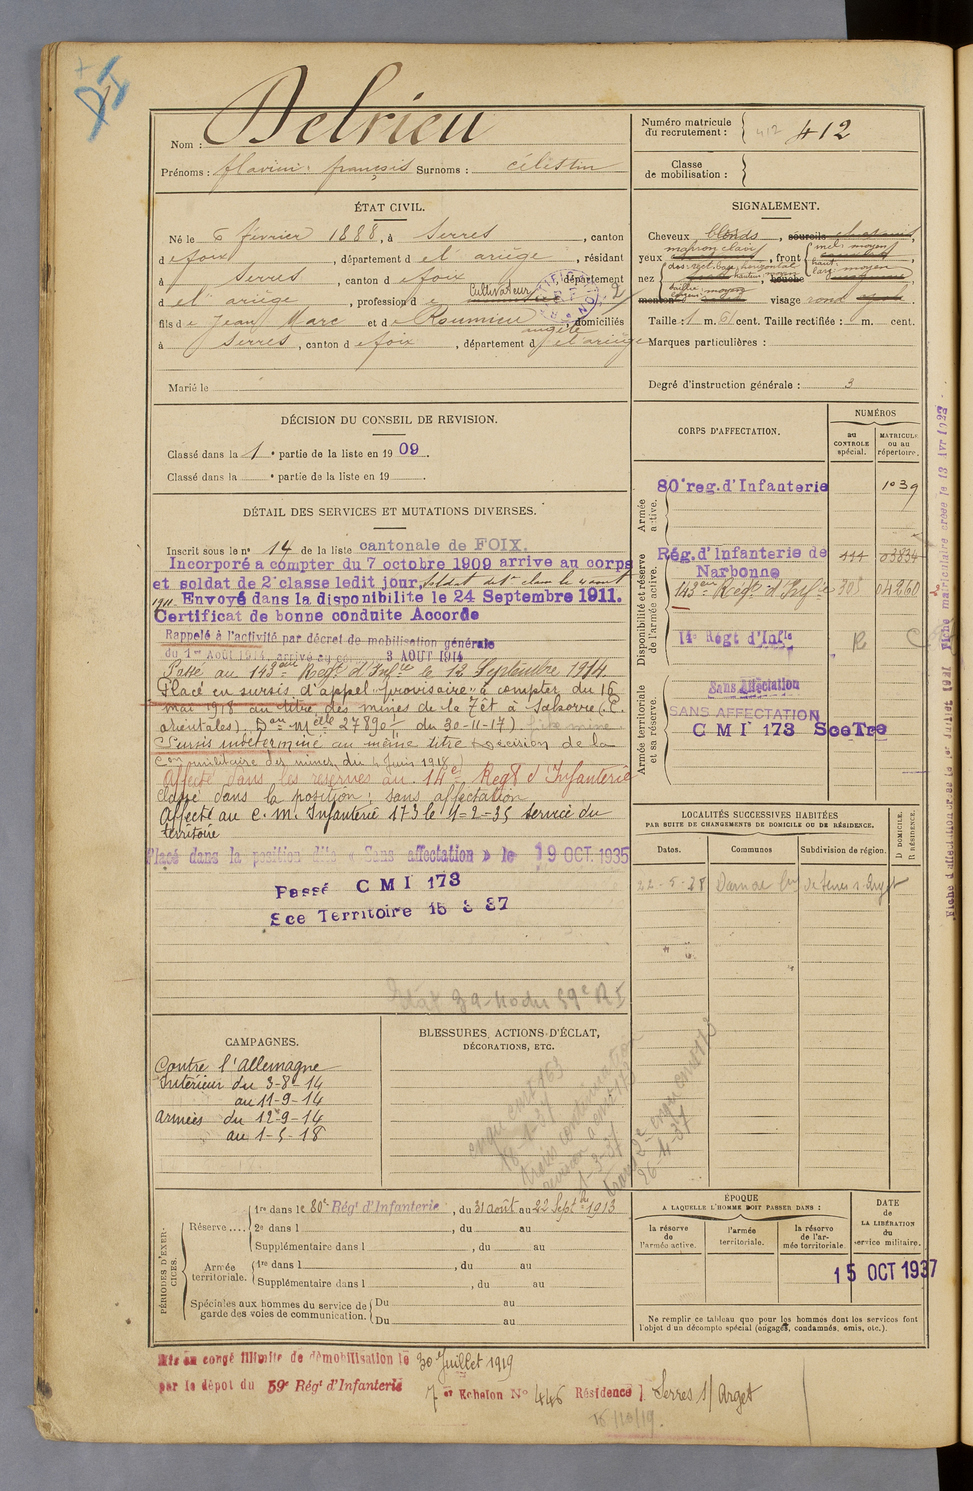 Nom : Delrieu
Prénoms : flavin françois Surnoms : célestin
Numéro matricule
du recrutement : 412 412
Classe
de mobilisation :
ÉTAT CIVIL.
Né le 6 février 1888, à Serres, canton
de foix, département de l'ariège, résidant
à Serres, canton de foix, département
de l'ariège, profession de Cultivateur
fils de Jean Marc et de Roumieu angèle, domiciliés
à Serres, canton de foix, département de l'ariège
Marié le
SIGNALEMENT.
Cheveux blonds, sourcils
yeux marron clair, front incl: moyen haut: larg: moyen
nez dos rect. base horizontal haut: moyen saillie: moyen larg: moyen, bouche
menton visage rond
Taille : 1 m. 61 cent. Taille rectifiée : m. cent.
Marques particulières :
Degré d'instruction générale : 3
DÉCISION DU CONSEIL DE REVISION.
Classé dans la 1e partie de la liste en 1909.
Classé dans la e partie de la liste en 19
DÉTAIL DES SERVICES ET MUTATIONS DIVERSES.
Inscrit sous le n° 14 de la liste cantonale de FOIX.
Incorporé à compter du 7 octobre 1909 arrive au corps
et soldat de 2e classe ledit jour. Soldat de 1e classe le
1911. Envoyé dans la disponibilite le 24 Septembre 1911.
Certificat de bonne conduite Accorde
Rappelé à l'activité par décret de mobilisation générale
du 1er Août 1914, arrivé au corps 3 AOUT 1914
Passé au 143ème Regt d'Infie le 12 Septembre 1914.
Placé en sursis d'appel "provisoire" à compter du 16
mai 1918 au titre des mines de la Têt à Sahorre (P.
orientales). Don Melle 27890 I du 30-11-17)
Sursis indeterminé au même titre Decision de la
Con militaire des mines du 4 Juin 1918)
Affecté dans les reserves au 14e Regt d'Infanterie
Classé dans la position: sans affectation
Affecté au C.M. Infanterie 173 le 1-2-35 service du
territoire
Placé dans la position dite « Sans affectation » le 19 OCT. 1935
Passé C M I 173
Sce Territoire 15 3 37
CORPS D'AFFECTATION.
NUMÉROS
au CONTROLE spécial.
MATRICULE ou au répertoire.
Armée active.
80e reg. d'Infanterie 1039
Disponibilité et réserve de l'armée active.
Rég. d'Infanterie de Narbonne 444 03834
143ème Regt d'Infie 308 04260
14e Régt d'Infie R
Armée territoriale et sa réserve.
Sans Affectation
SANS AFFECTATION
C M I 173 Sce Tre
LOCALITÉS SUCCESSIVES HABITÉES
PAR SUITE DE CHANGEMENTS DE DOMICILE OU DE RÉSIDENCE.
Dates. Communes Subdivision de région. D DOMICILE. R RÉSIDENCE.
CAMPAGNES.
Contre l'Allemagne
Intérieur du 3-8-14
au 11-9-14
Armées du 12-9-14
au 1-5-18
BLESSURES, ACTIONS D'ÉCLAT,
DÉCORATIONS, ETC.
PÉRIODES D'EXERCICES.
Réserve....
1re dans le 80e Régt d'Infanterie, du 31 août au 22 Septbre 1913
2e dans l , du au
Supplémentaire dans l , du au
Armée territoriale.
1re dans l , du au
Supplémentaire dans l , du au
Spéciales aux hommes du service de garde des voies de communication.
Du au
Du au
ÉPOQUE
A LAQUELLE L'HOMME DOIT PASSER DANS :
la réserve de l'armée active.
l'armée territoriale.
la réserve de l'armée territoriale.
DATE de LA LIBÉRATION du service militaire.
15 OCT 1937
Ne remplir ce tableau que pour les hommes dont les services font
l'objet d'un décompte spécial (engagés, condamnés, omis, etc.).
Mis en congé illimité de démobilisation le 30 Juillet 1919
par le dépôt du 59e Régt d'Infanterie
7e Echelon N° 446 Résidence] Serres s/ Arget